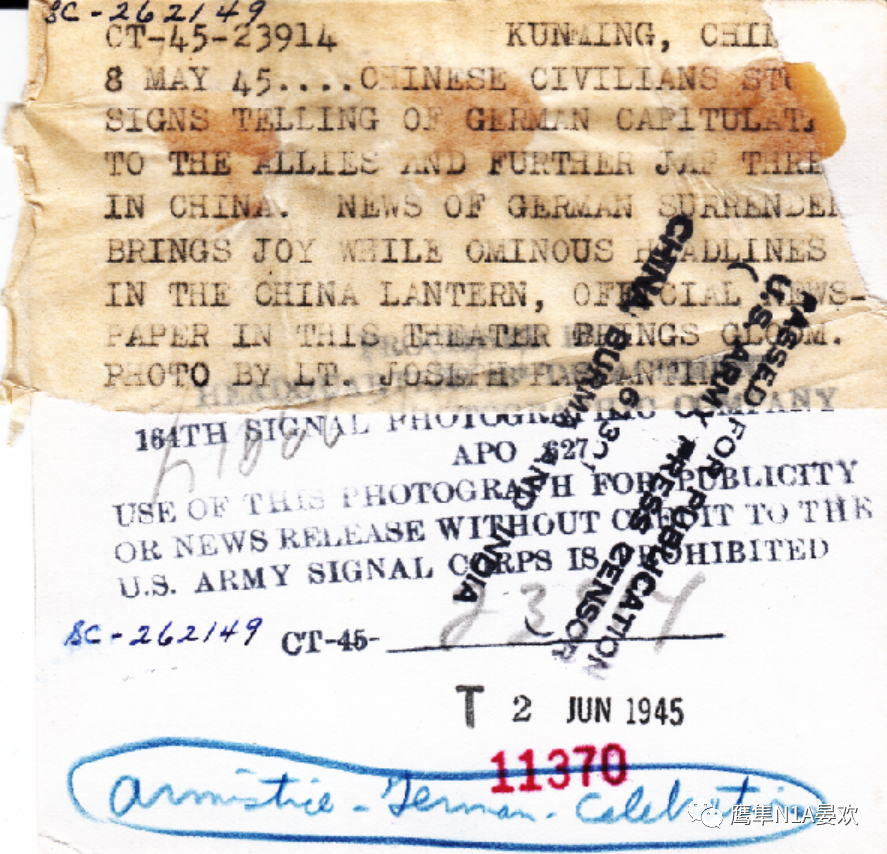 SC-262149
CT-45-23914 KUNMING, CHIN
8 MAY 45....CHINESE CIVILIANS STU
SIGNS TELLING OF GERMAN CAPITULAT
TO THE ALLIES AND FURTHER JAP THRE
IN CHINA. NEWS OF GERMAN SURRENDER
BRINGS JOY WHILE OMINOUS HEADLINES
IN THE CHINA LANTERN, OFFICIAL NEWS-
PAPER IN THIS THEATER BRINGS GLOOM.
PHOTO BY LT. JOSEPH
164TH SIGNAL PHOTOGRAPHIC COMPANY
APO 627
USE OF THIS PHOTOGRAPH FOR PUBLICITY
OR NEWS RELEASE WITHOUT CREDIT TO THE
U.S. ARMY SIGNAL CORPS IS PROHIBITED
PASSED FOR PUBLICATION
U.S. ARMY PRESS CENSOR
CHINA BURMA AND INDIA
SC-262149 CT-45-
T 2 JUN 1945
11370
Armistice - German - Celebratio
鹰隼N1A晏欢